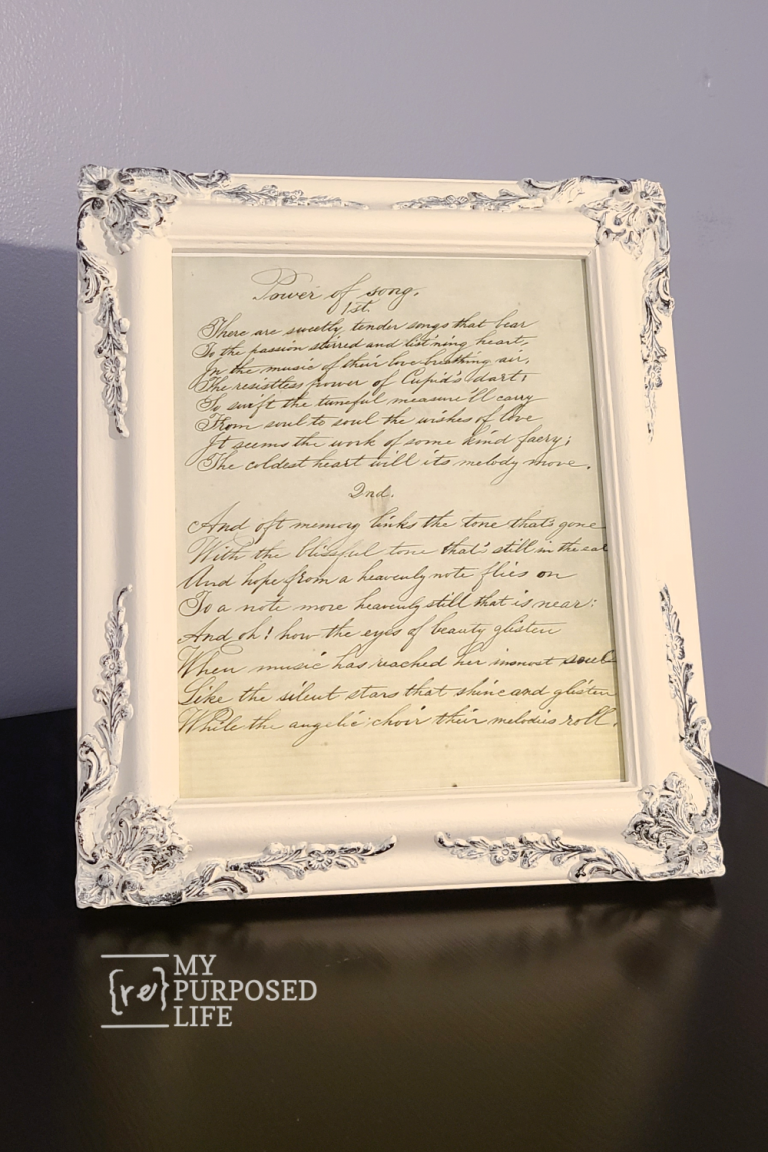 Power of song.
1st.
There are sweetly tender songs that bear
To the passion stirred and list'ning heart,
In the music of their love breathing air,
The resistless power of Cupid's dart:
So swift the tuneful measure'll carry
From soul to soul the wishes of love
It seems the work of some kind faery;
The coldest heart will its melody move.
2nd.
And oft memory links the tone that's gone
With the blissful tone that's still in the ear
And hope from a heavenly note flies on
To a note more heavenly still that is near:
And oh! how the eyes of beauty glisten
When music has reached her inmost soul
Like the silent stars that shine and glisten
While the angelic choir their melodies roll.
{re}
MY
PURPOSED
LIFE